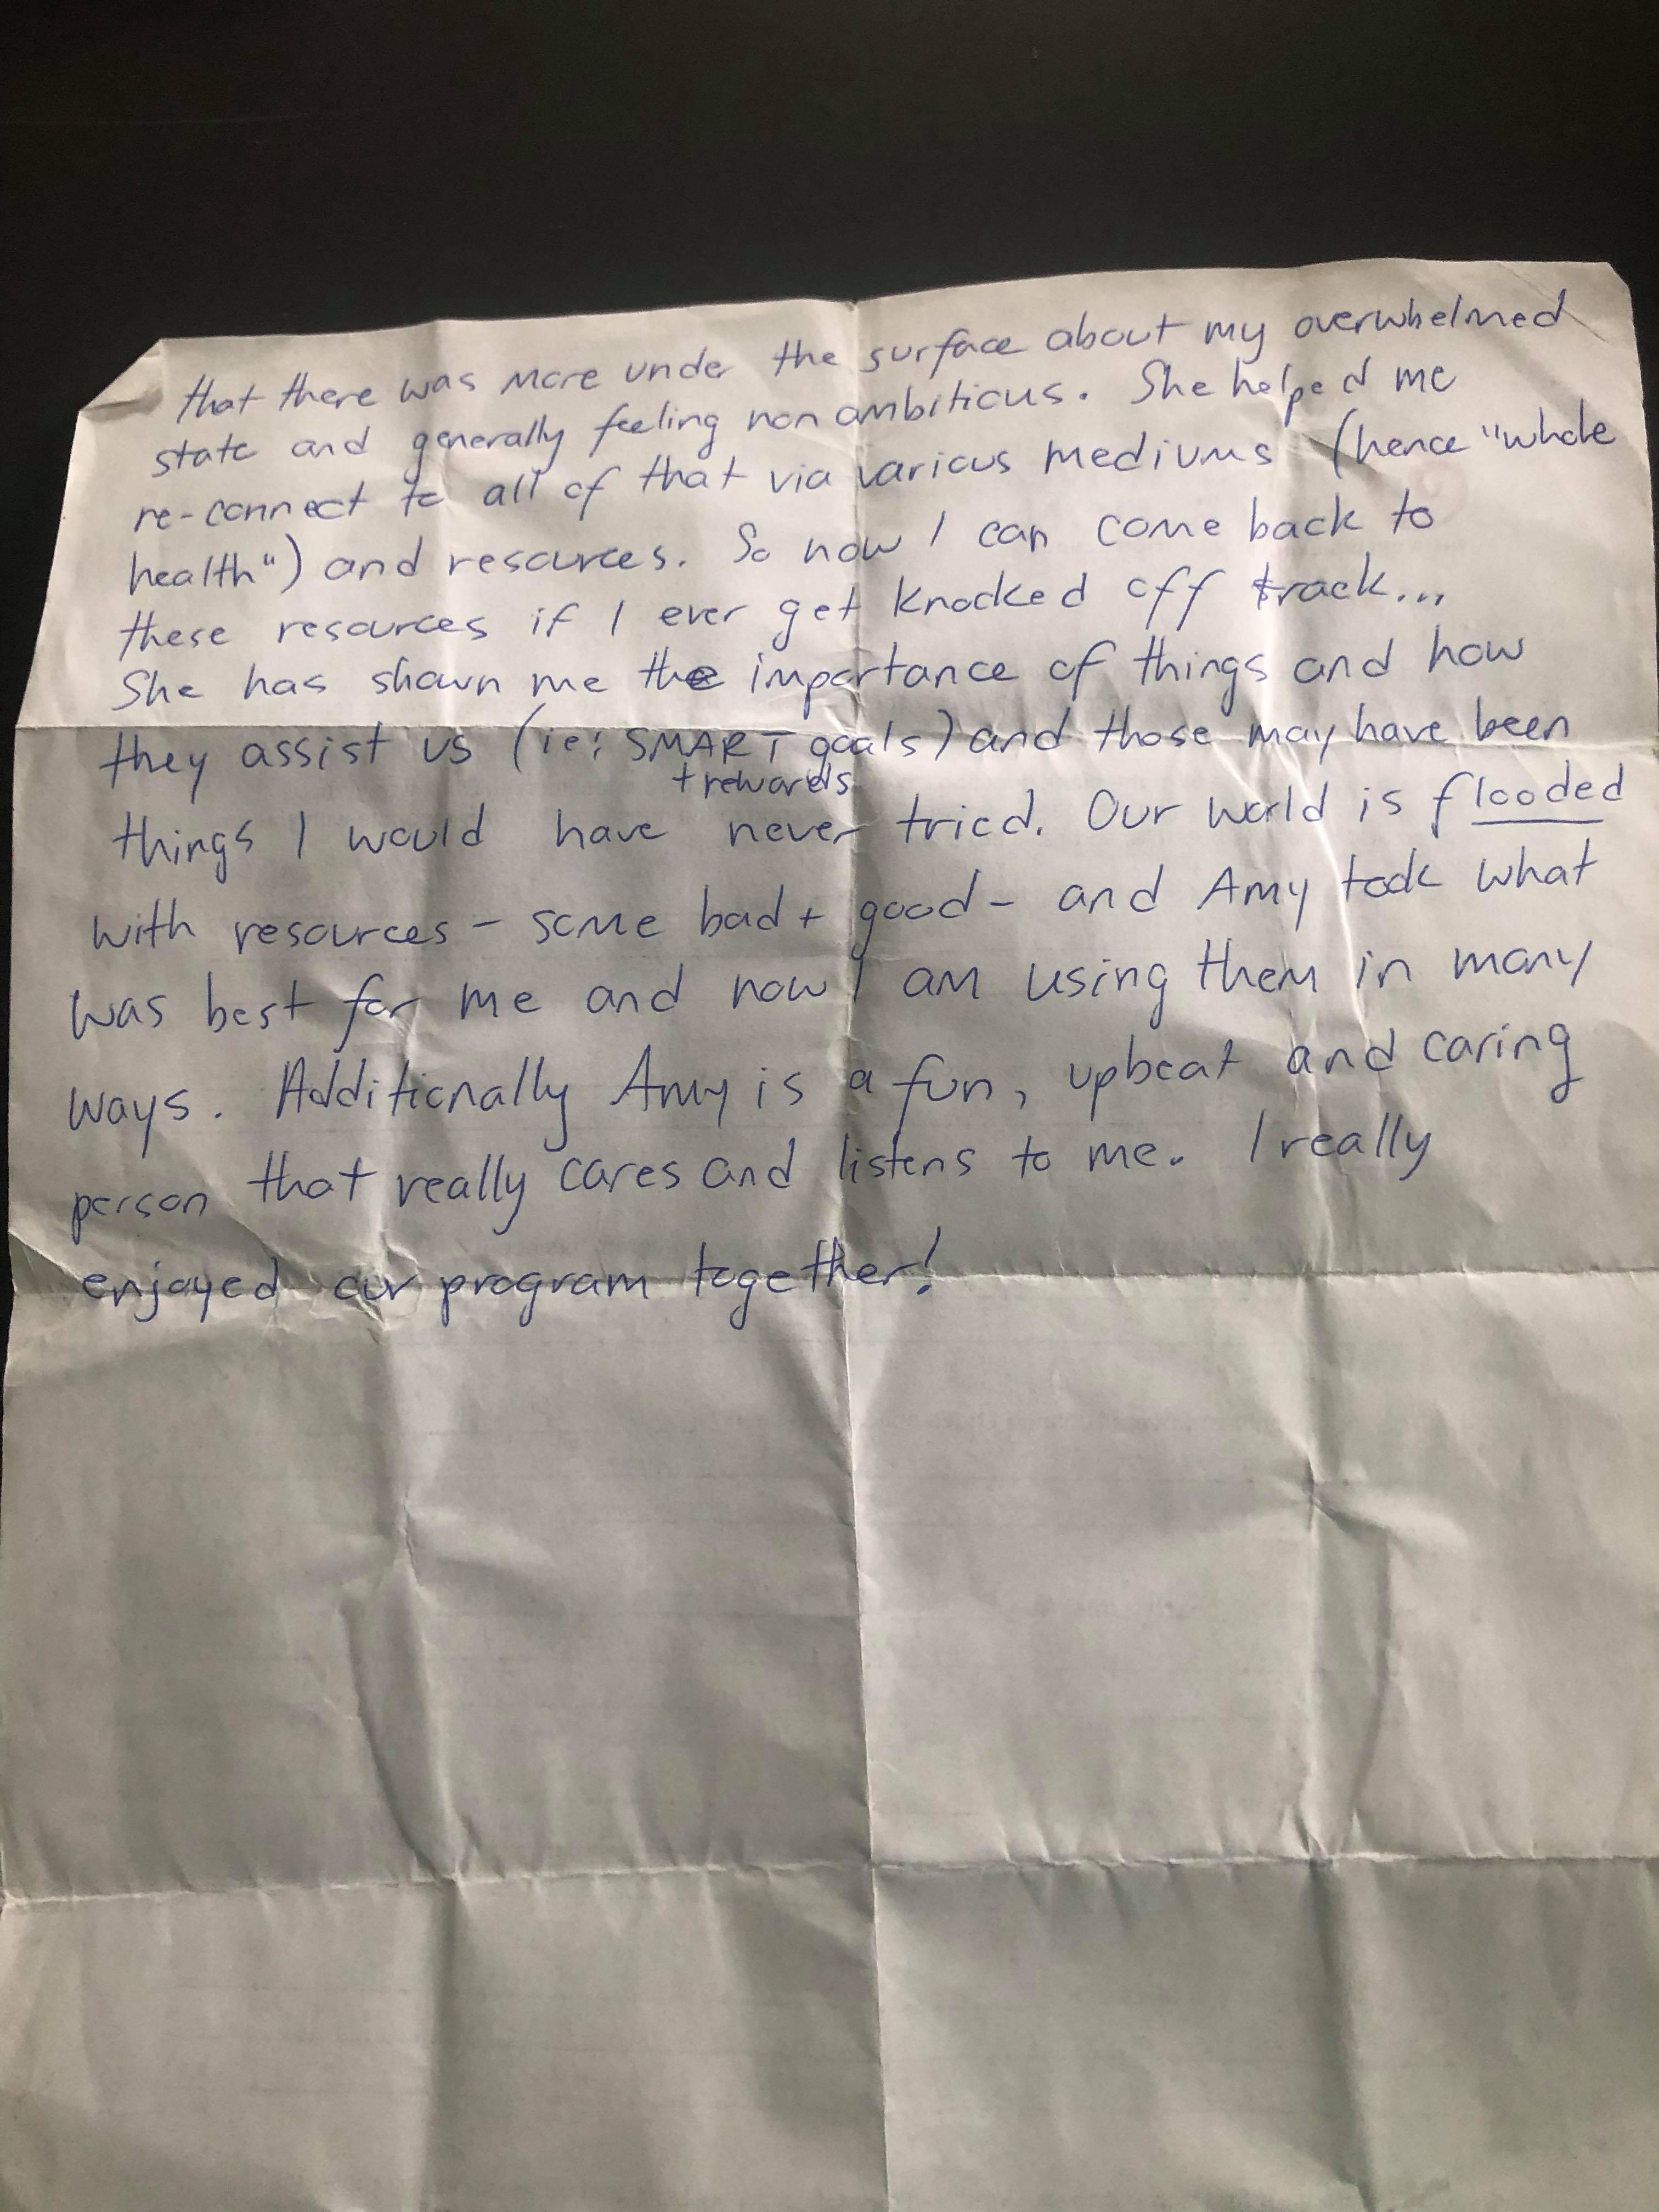 that there was more under the surface about my overwhelmed
state and generally feeling non ambitious. She helped me
re-connect to all of that via various mediums (hence "whole
health") and resources. So now I can come back to
these resources if I ever get knocked off track...
She has shown me the importance of things and how
they assist us (ie: SMART goals) and those may have been
+ rewards
things I would have never tried. Our world is flooded
with resources - some bad + good - and Amy took what
was best for me and now I am using them in many
ways. Additionally Amy is a fun, upbeat and caring
person that really cares and listens to me. I really
enjoyed our program together!